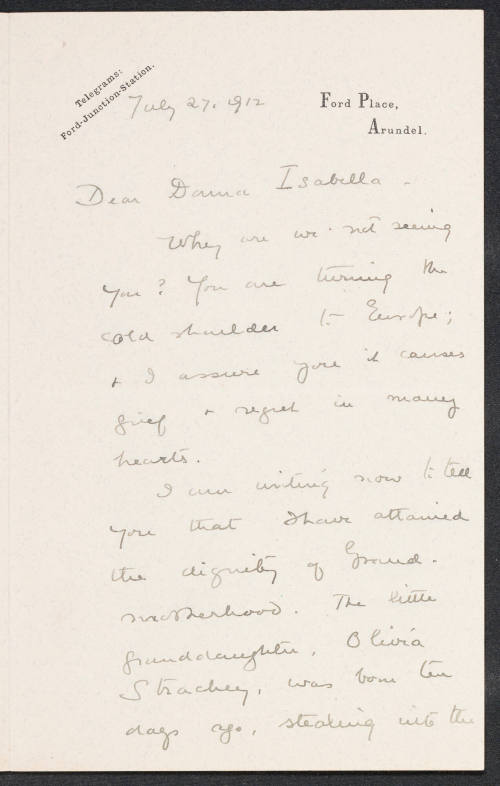 Telegrams:
Ford-Junction-Station.
July 27. 1912
Ford Place,
Arundel.
Dear Donna Isabella -
Why are we not seeing
you? You are turning the
cold shoulder to Europe;
& I assure you it causes
grief & regret in many
hearts.
I am writing now to tell
you that I have attained
the dignity of Grand-
motherhood. The little
granddaughter, Olivia
Strachey, was born ten
days ago, stealing into the